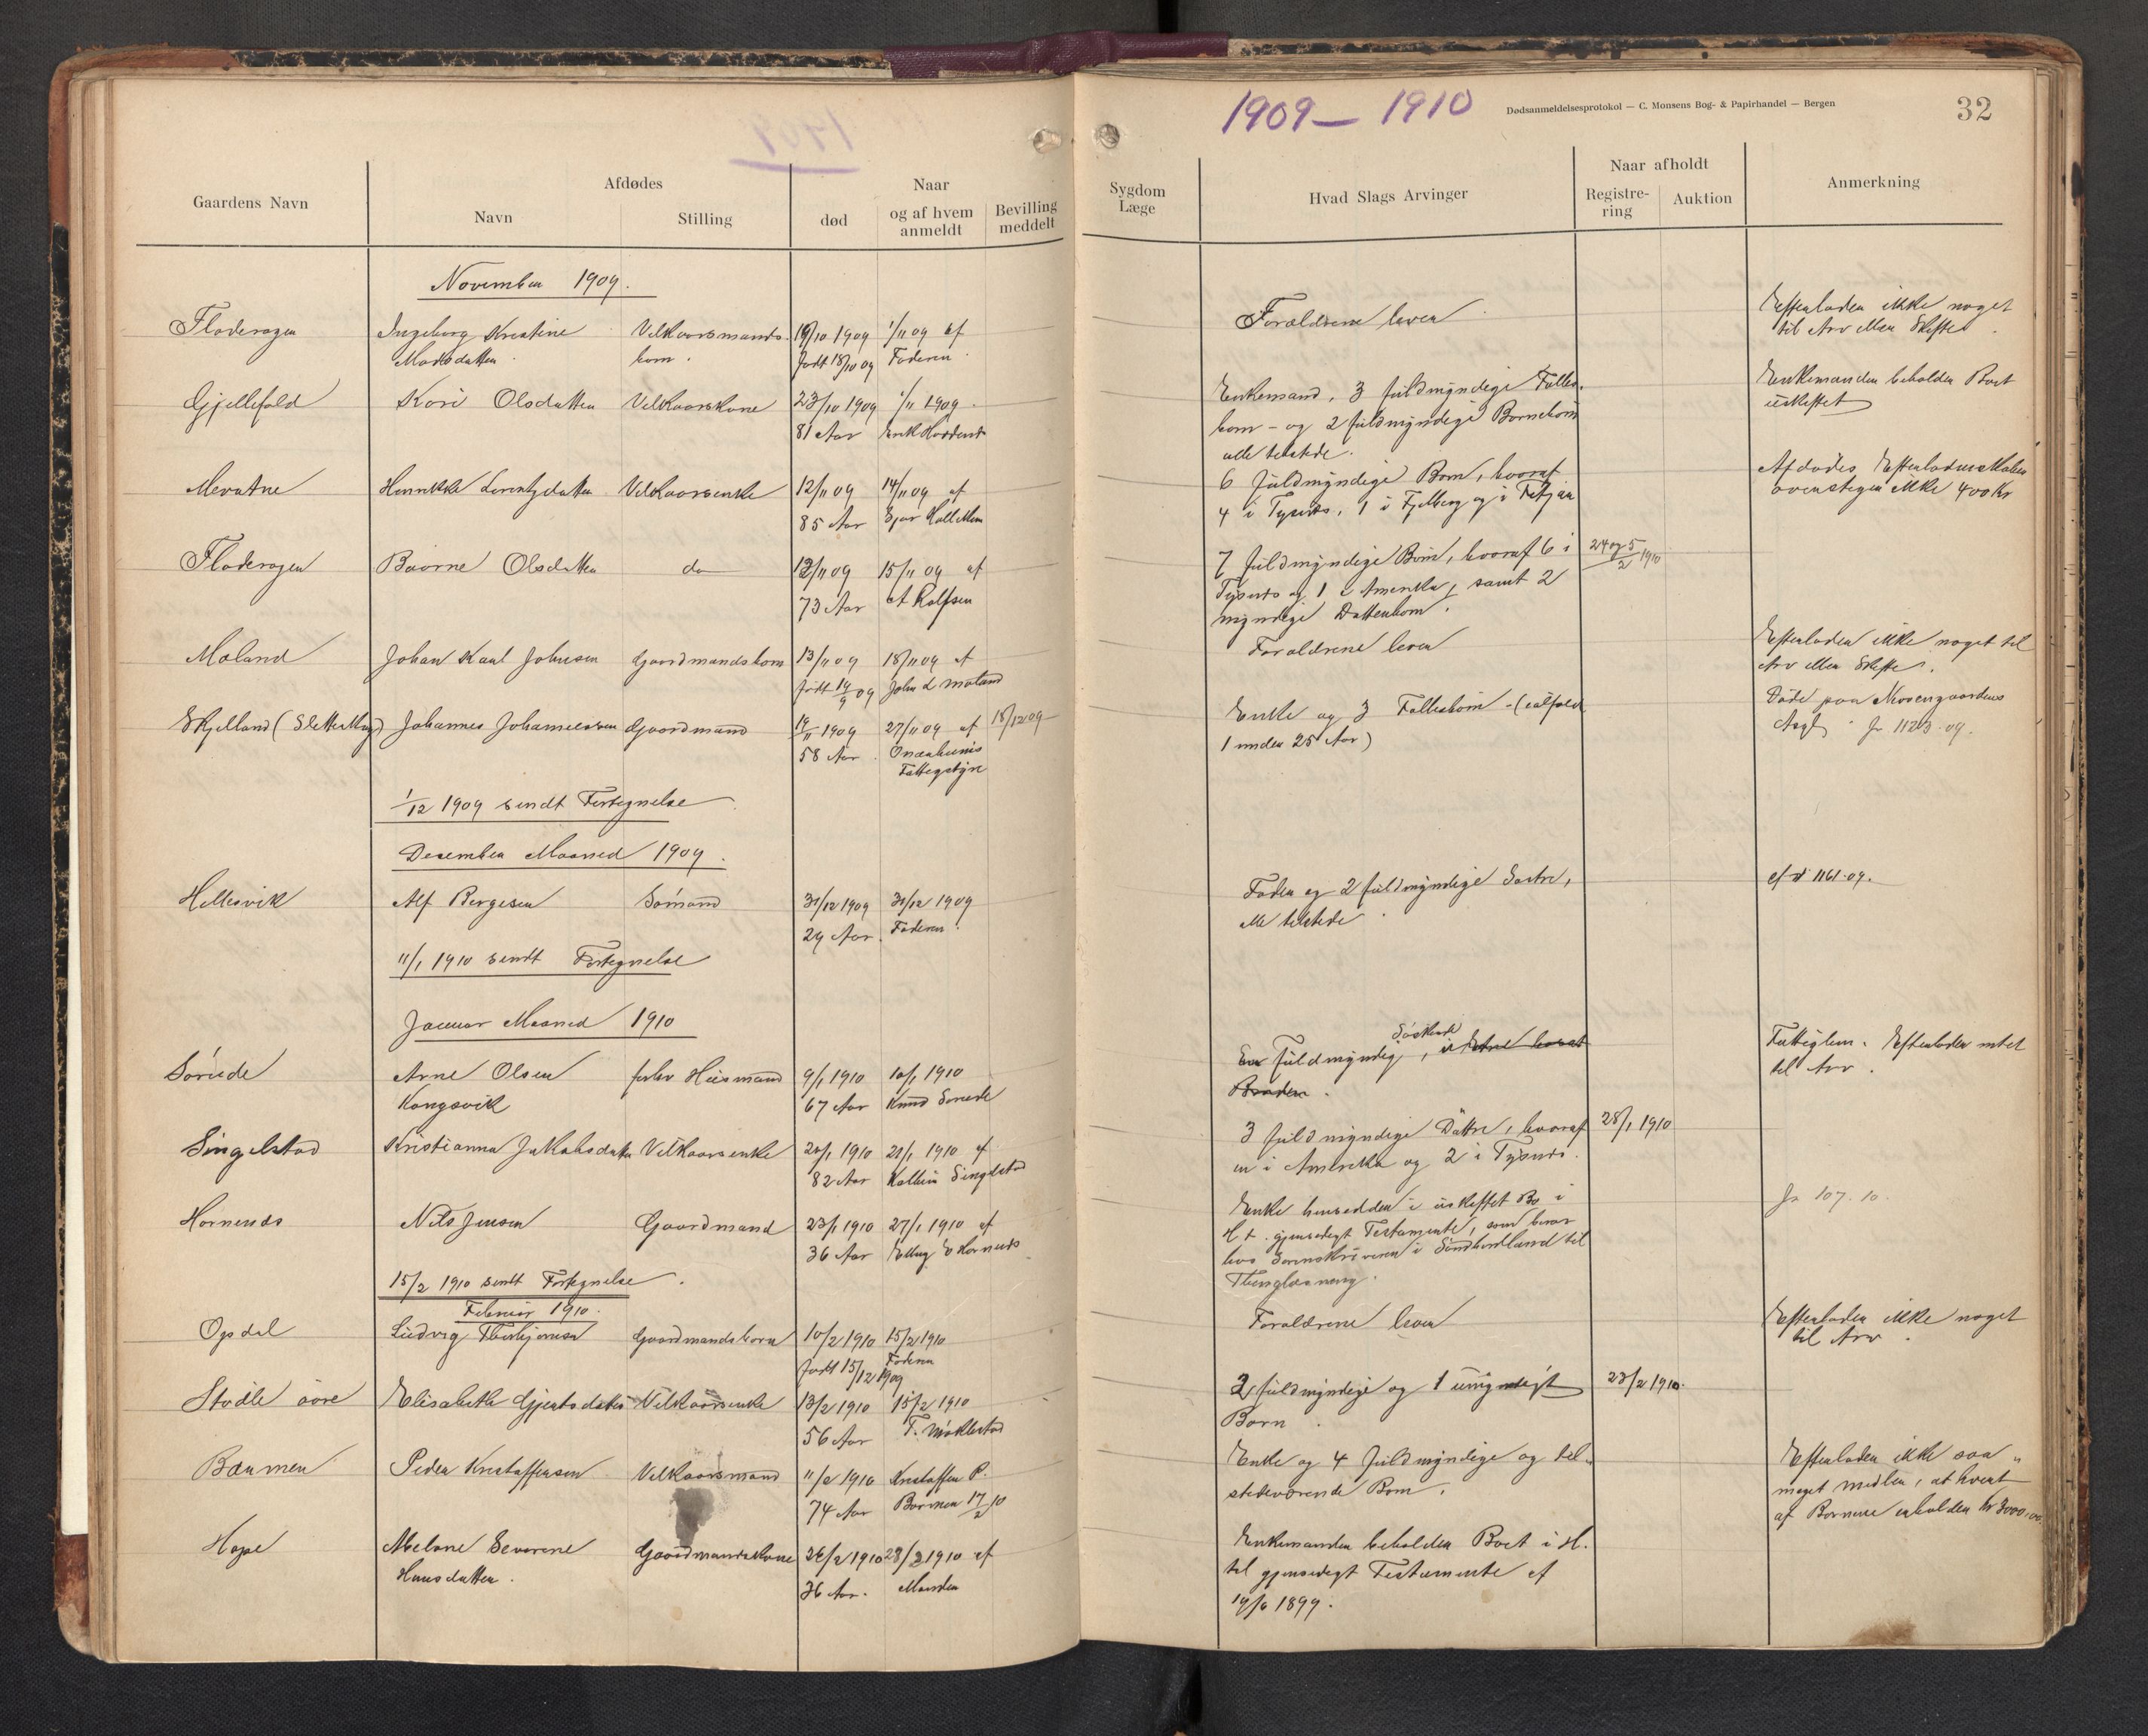 1909 — 1910
Dødsanmeldelsesprotokol — C. Monsens Bog- & Papirhandel — Bergen
32
Gaardens Navn
Afdødes
Navn
Stilling
Naar
død
og af hvem anmeldt
Bevilling meddelt
Sygdom
Læge
Hvad Slags Arvinger
Naar afholdt
Registre-
ring
Auktion
Anmerkning
November 1909.
Ingeborg Kristine
Madsdatter
Vilkaarsmands-
barn.
19/10 1909
født 18/10 09
1/11 09 af
Faderen
Forældrene lever
Efterlader ikke noget
til Arv eller Skifte.
Gjellefald
Kari Olsdatter
Vilkaarskone
23/10 1909
81 Aar
1/11 1909
Enkemand, 3 fuldmyndige Fælles-
børn - og 2 fuldmyndige Børnebørn
alle tilstede.
Enkemanden beholder Boet
uskiftet
Mevatne
Henrikke Lorentzdatter
Vilkaarsenke
12/11 09
85 Aar
14/11 09 af
6 fuldmyndige Børn, hvoraf
4 i Tysvær, 1 i Fjelberg og i
Afdødes Efterladenskaber
overstiger ikke 400 Kr
Olsdatter
do
12/11 09
73 Aar
15/11 09 af
A Rolfsen
7 fuldmyndige Børn, hvoraf 6 i
Tysvær og 1 i Amerika, samt 2
myndige Datterbørn.
24 og 5/2 1910
Mæland
Johan Karl Johnsen
Gaardmandsbarn
13/11 09
født 14/9 09
18/11 09 af
John L Mæland
Forældrene lever
Efterlader ikke noget til
Arv eller Skifte.
Skjelland
Johannes Johannessen
Gaardmand
14/11 1909
58 Aar
27/11 09 af
Fattigstyre
18/12 09
Enke og 3 Fællesbørn - (ialfald
1 under 25 Aar)
Døde paa
Asyl jr 1123.09.
1/12 1909 sendt Fortegnelse
Desember Maaned 1909.
Hettesvik
Alf Børgesen
Sømand
31/12 1909
29 Aar.
31/12 1909
Faderen.
Fader og 2 fuldmyndige Søstre,
alle tilstede
1161.09.
11/1 1910 sendt Fortegnelse
Januar Maaned 1910
Sørude
Arne Olsen
Kongsvik
forhv Husmand
9/1 1910
67 Aar
10/1 1910
Knud Sørude
Søskende
En fuldmyndig, i Etne bosat
Broder.
Fattiglem. Efterlader intet
til Arv.
Singelstad
Kristianna Jakobsdatter
Vilkaarsenke
20/1 1910
82 Aar
21/1 1910 af
Singelstad
3 fuldmyndige Døttre, hvoraf
en i Amerika og 2 i Tysvær.
28/1 1910
Hornenes
Nils Jensen
Gaardmand
23/1 1910
36 Aar
27/1 1910 af
Enke hensidder i uskiftet Bo i
H.t. gjensidigt Testamente, som beror
hos Sorenskriveren i Søndhordland til
Thinglæsning.
jr 107.10.
15/2 1910 sendt Fortegnelse.
Februar 1910.
Opsdal
Ludvig Thorbjørnsen
Gaardmandsbarn
10/2 1910
født 15/12 1909
15/2 1910
Faderen
Forældrene lever
Efterlader ikke noget
til Arv.
Stødle øvre
Elisabeth Gjertsdatter
Vilkaarsenke
13/2 1910
56 Aar
15/2 1910
2 fuldmyndige og 1 umyndigt
Barn.
23/2 1910.
Børmen
Peder Kristoffersen
Vilkaarsmand
11/2 1910
74 Aar
Kristoffer P.
Børmen 17/2 10
Enke og 4 fuldmyndige og til-
stedeværende Børn.
Efterlader ikke saa
meget midler, at hvert
af Børnene erholder kr 3000,00.
Hope
Melone Severine
Hansdatter.
Gaardmandskone
26/2 1910
36 Aar.
28/2 1910 af
Manden
Enkemanden beholder Boet i H.
til gjensidigt Testamente af
19/6 1899.